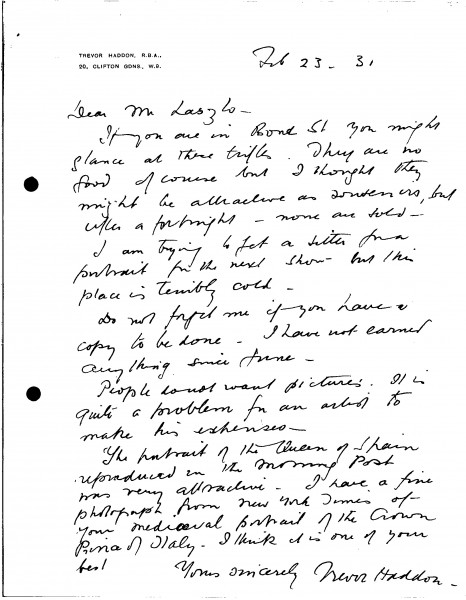 TREVOR HADDON, R.B.A.,
20, CLIFTON GDNS, W.9.
Feb 23. 31
Dear Mr Laszlo –
If you are in Bond St you might
glance at these trifles. They are no
good of course but I thought they
might be attractive as souvenirs, but
after a fortnight – none are sold –
I am trying to get a sitter for a
portrait for the next show but this
place is terribly cold –
Do not forget me if you have a
copy to be done – I have not earned
anything since June –
People do not want pictures. It is
quite a problem for an artist to
make his expenses –
The portrait of the Queen of Spain
reproduced in the Morning Post
was very attractive – I have a fine
photograph from New York Times of
your mediæval portrait of the Crown
Prince of Italy – I think it is one of your
best
Yours sincerely Trevor Haddon –